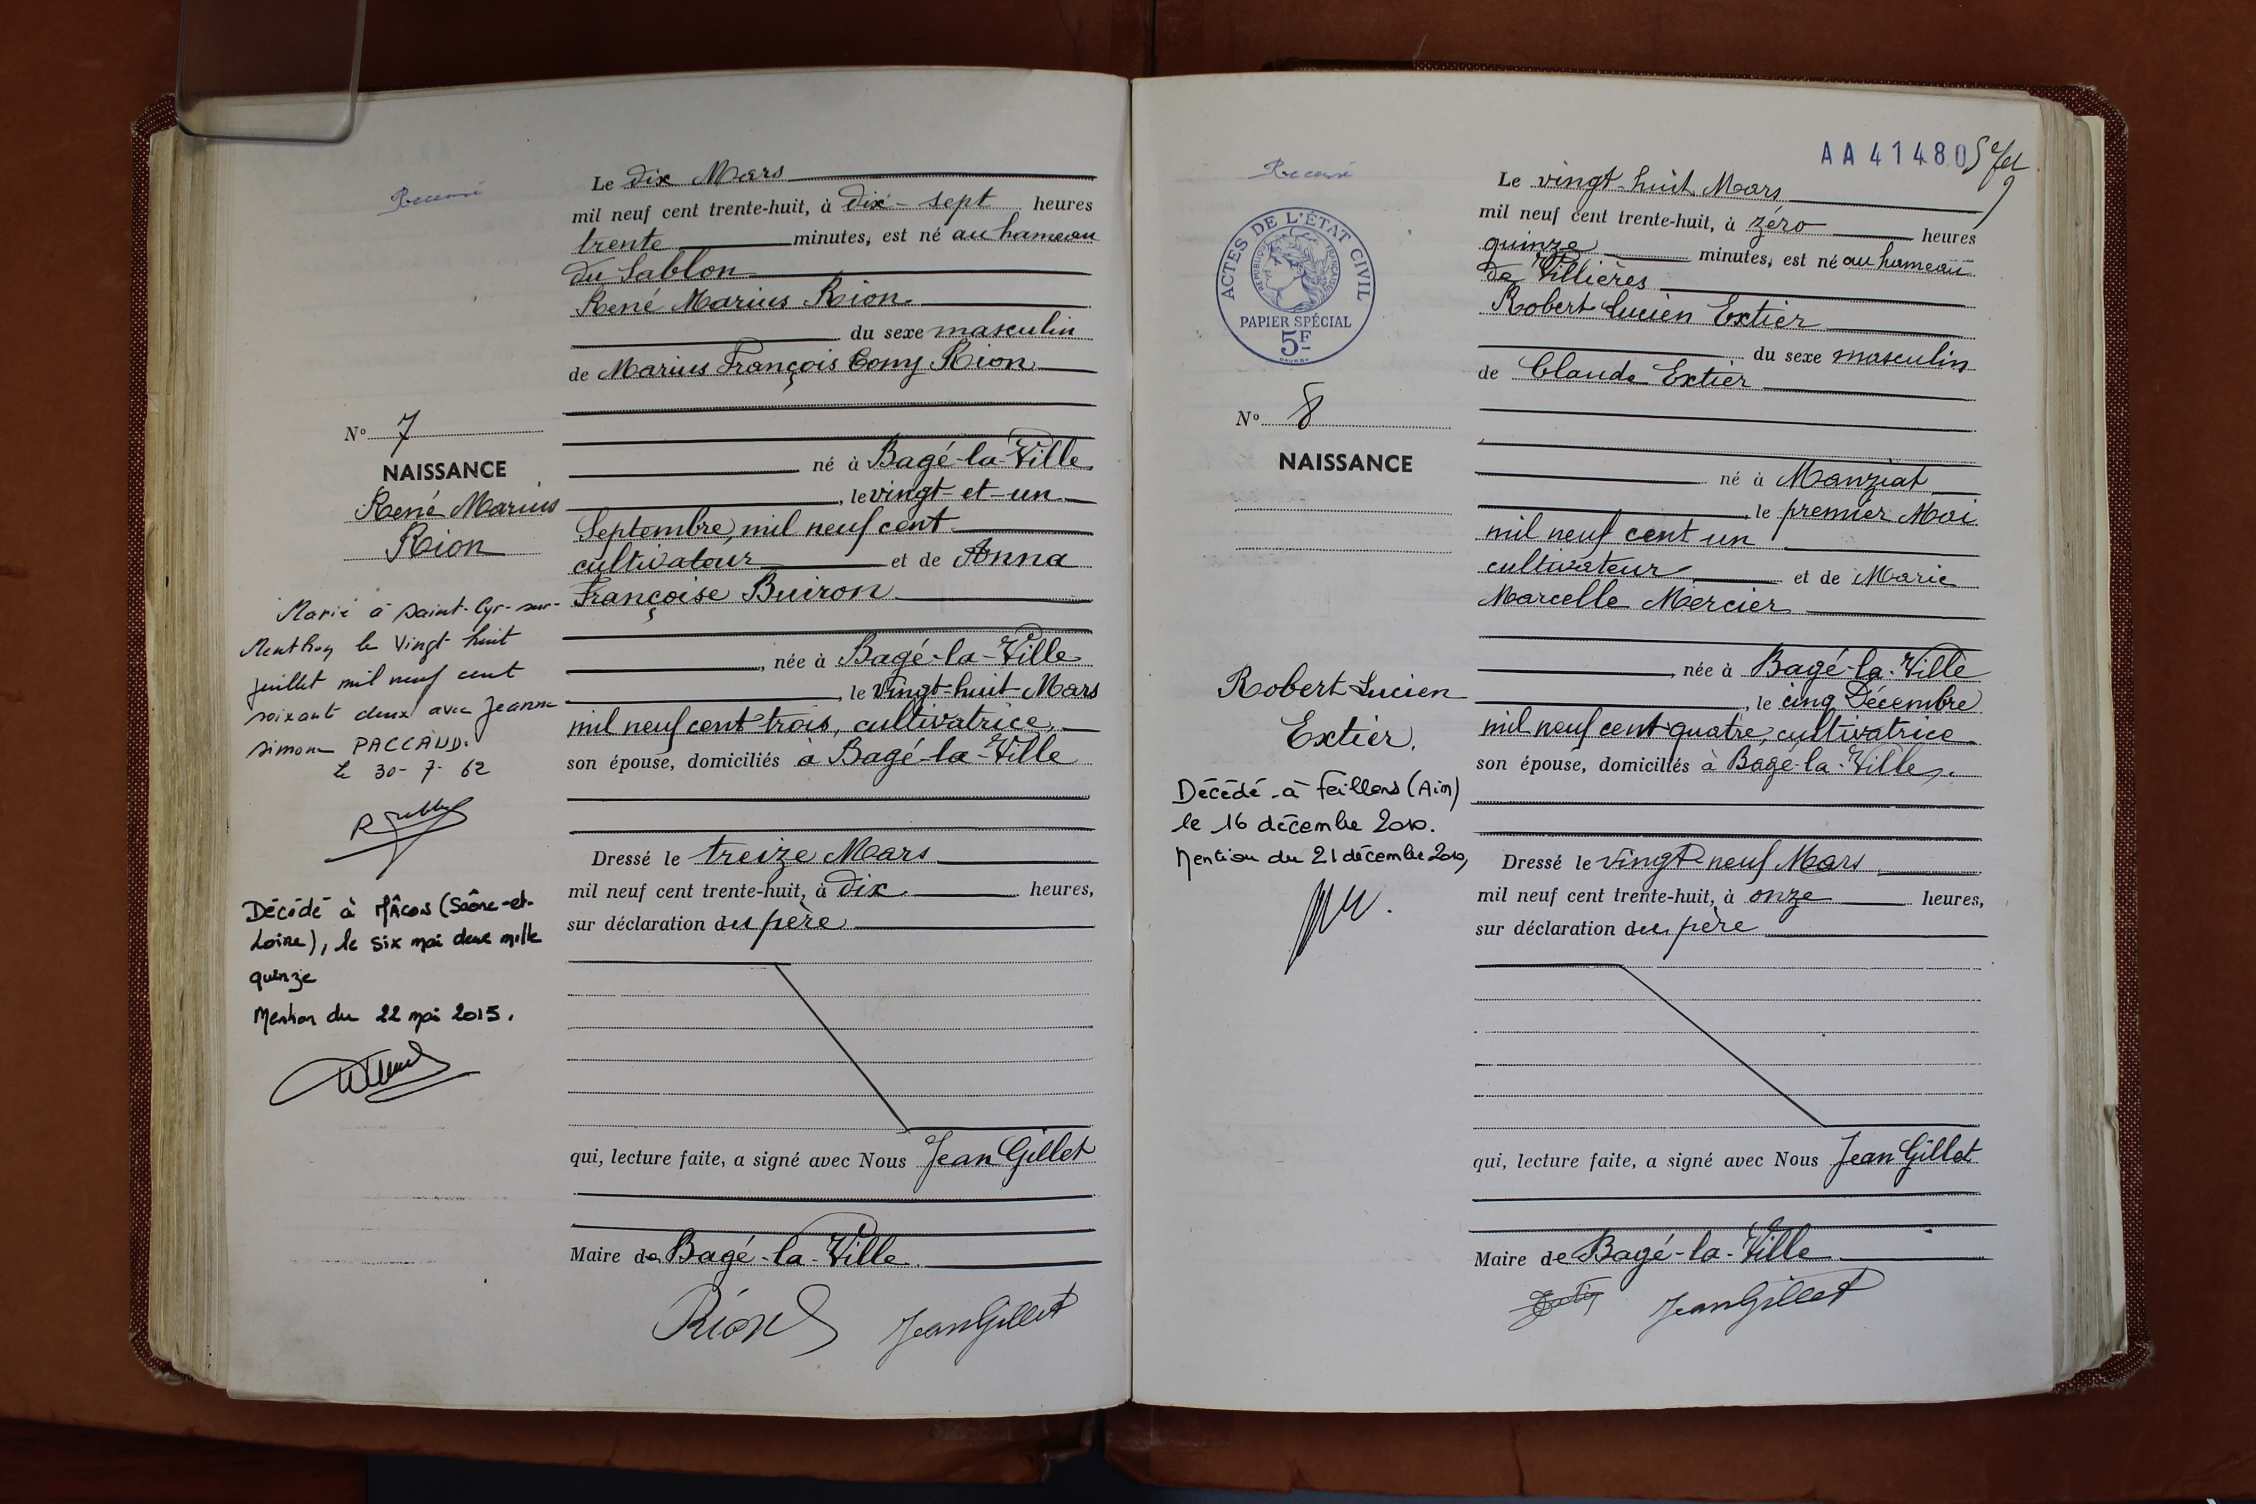 Recensé
Le dix Mars
mil neuf cent trente-huit, à dix-sept heures
trente minutes, est né au hameau
du Sablon
René Marius Rion
du sexe masculin
de Marius François Cony Rion
né à Bagé-la-Ville
, le vingt-et-un
Septembre, mil neuf cent
cultivateur et de Anna
Françoise Buiron
, née à Bagé-la-Ville
, le vingt-huit Mars
mil neuf cent trois, cultivatrice,
son épouse, domiciliés à Bagé-la-Ville
Dressé le treize Mars
mil neuf cent trente-huit, à dix heures,
sur déclaration du père
qui, lecture faite, a signé avec Nous Jean Gillet
Maire de Bagé-la-Ville
Rion
Jean Gillet
N° 7
NAISSANCE
René Marius
Rion
Marié à Saint-Cyr-sur-
Menthon le vingt huit
juillet mil neuf cent
soixant deux avec Jeanne
Simone PACCAUD.
le 30-7-62
Décédé à Mâcon (Saône-et-
Loire), le six mai deux mille
quinze
Mention du 22 mai 2015.
AA41480
Recensé
ACTES DE L'ÉTAT CIVIL
RÉPUBLIQUE FRANÇAISE
PAPIER SPÉCIAL
5F
Le vingt-huit Mars
mil neuf cent trente-huit, à zéro heures
quinze minutes, est né au hameau
de Villières
Robert Lucien Extier
du sexe masculin
de Claude Extier
né à Manziat
, le premier Mai
mil neuf cent un
cultivateur et de Marie
Marcelle Mercier
, née à Bagé-la-Ville
, le cinq Décembre
mil neuf cent quatre, cultivatrice
son épouse, domiciliés à Bagé-la-Ville.
Dressé le vingt-neuf Mars
mil neuf cent trente-huit, à onze heures,
sur déclaration du père
qui, lecture faite, a signé avec Nous Jean Gillet
Maire de Bagé-la-Ville
Jean Gillet
N° 8
NAISSANCE
Robert Lucien
Extier.
Décédé à Feillens (Ain)
le 16 décembre 2010.
Mention du 21 décembre 2010,